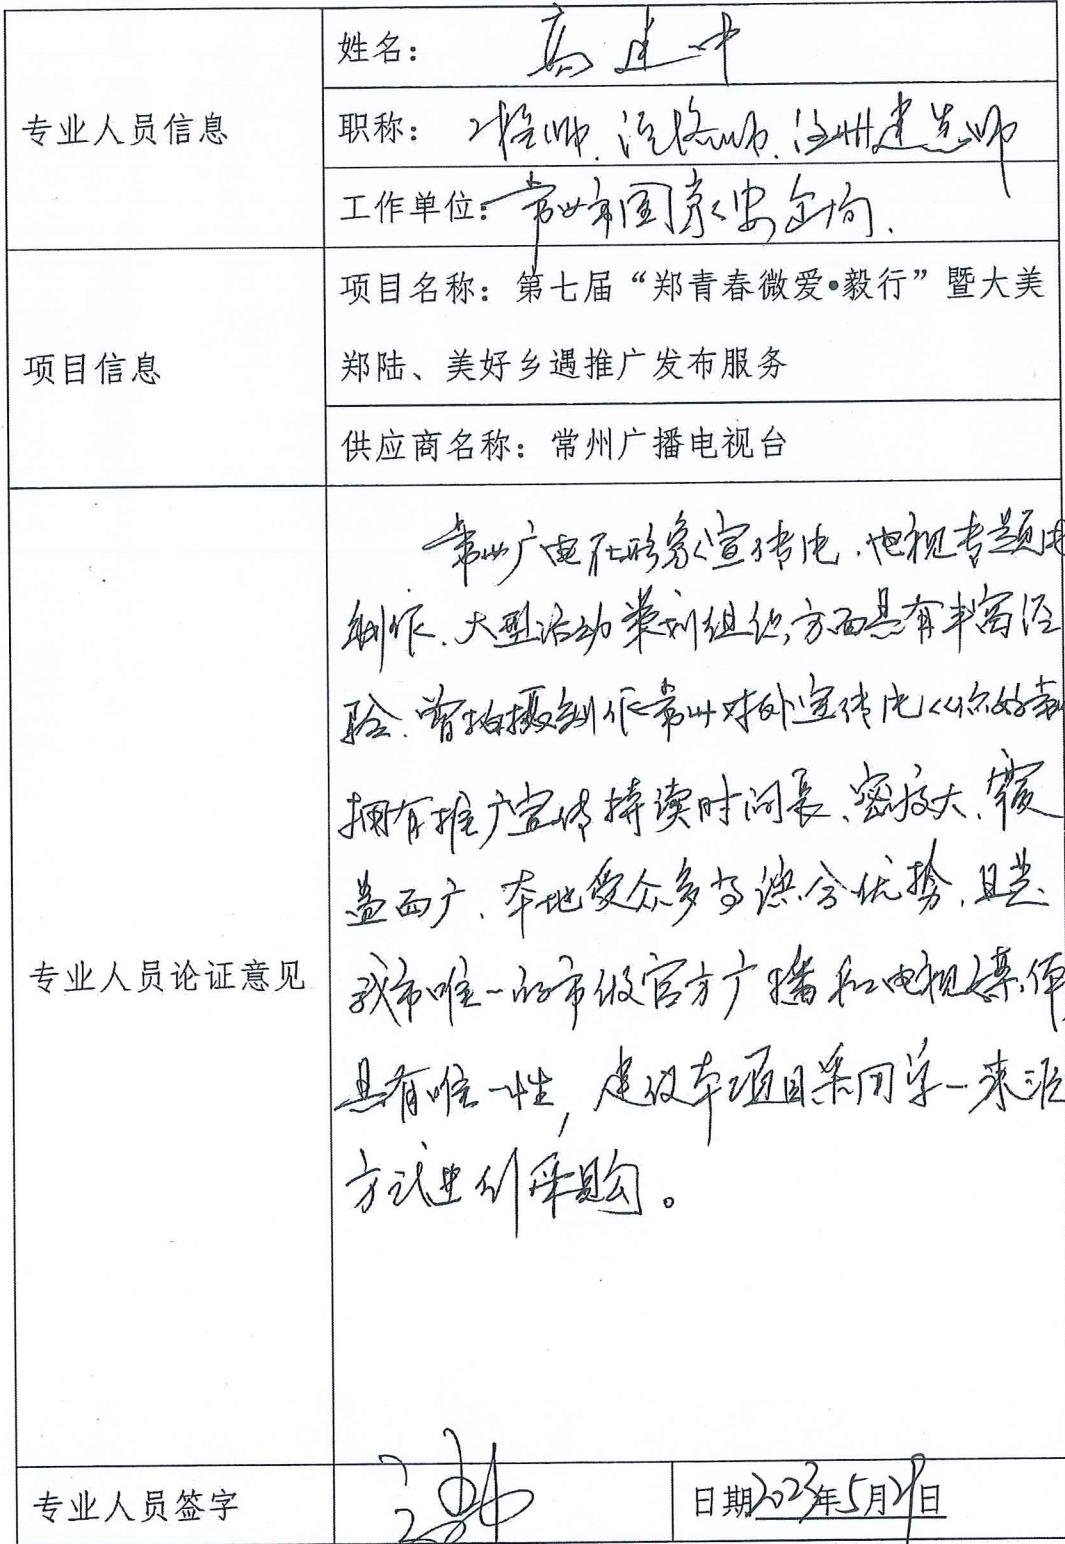 专业人员信息
姓名：高建中
职称：工程师、经济师、注册建造师
工作单位：常州市国家安全局.
项目信息
项目名称：第七届“郑青春微爱•毅行”暨大美
郑陆、美好乡遇推广发布服务
供应商名称：常州广播电视台
专业人员论证意见
常州广电在形象宣传片、电视专题片
制作、大型活动策划组织方面具有丰富经
验、曾拍摄制作常州对外宣传片《你好常州
拥有推广宣传持续时间长、密度大、覆
盖面广、本地受众多等综合优势，且是
我市唯一的市级官方广播和电视媒体
具有唯一性，建议本项目采用单一来源
方式进行采购。
专业人员签字
日期2023年5月29日